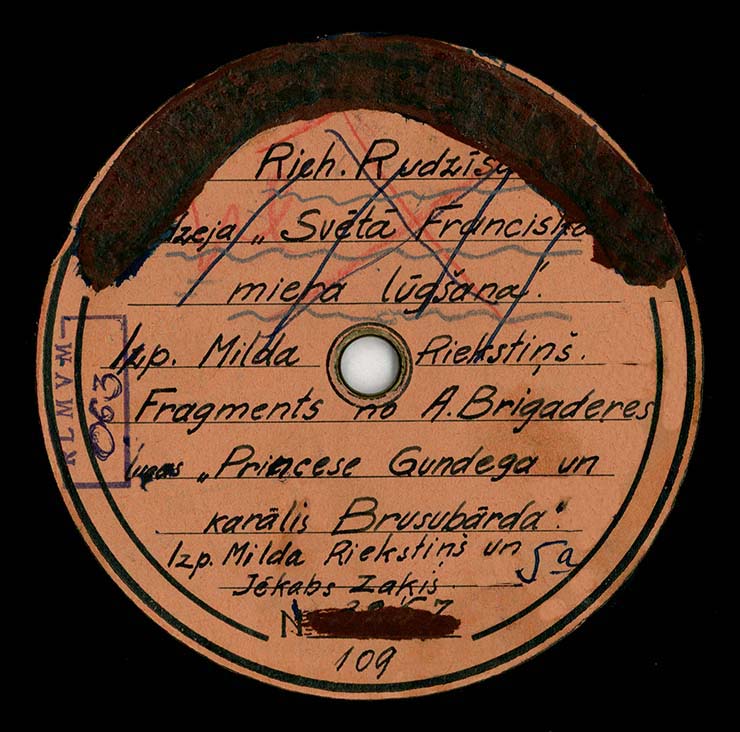 Rich. Rudzīša
dzeja „Svētā Franciska
miera lūgšana“.
Izp. Milda Riekstiņš.
Fragments no A. Brigaderes
lugas „Princese Gundega un
karālis Brusubārda“.
Izp. Milda Riekstiņš un
Jēkabs Zaķis.
5a
N
109
RLMVM
063